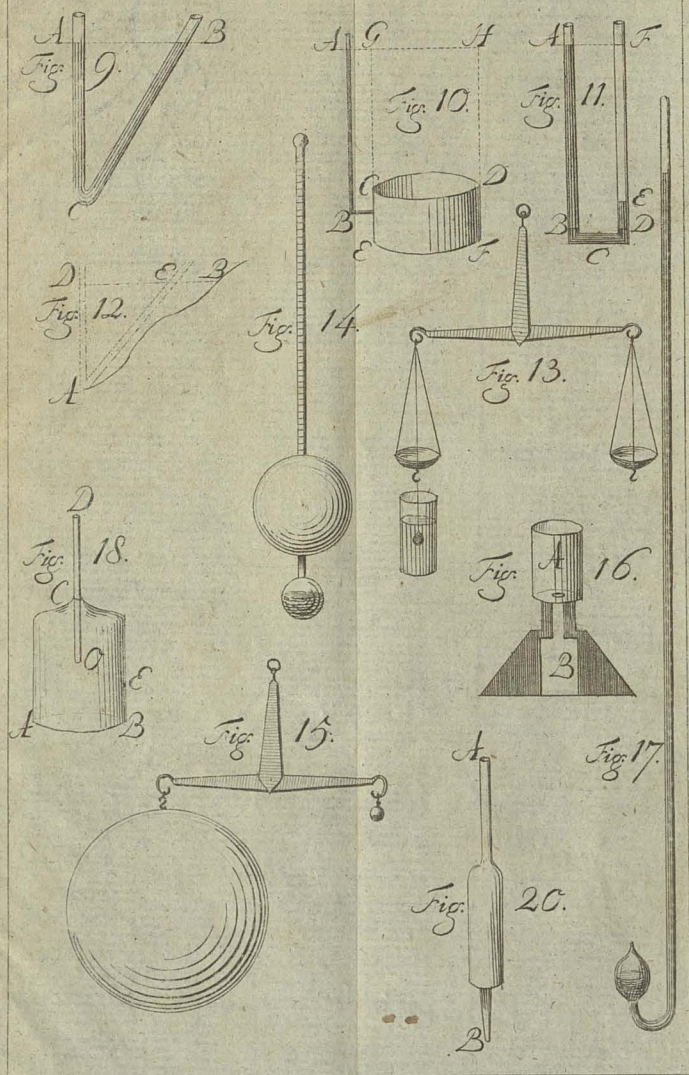 A B
Fig. 9.
C
A G H
Fig. 10.
C D
B
E F
A F
Fig. 11.
E
B D
C
D E B
Fig. 12.
A
Fig. 13.
Fig. 14.
D
Fig. 18.
C
O
E
A B
Fig. 15.
Fig. 16.
A
B
Fig. 17.
A
Fig. 20.
B